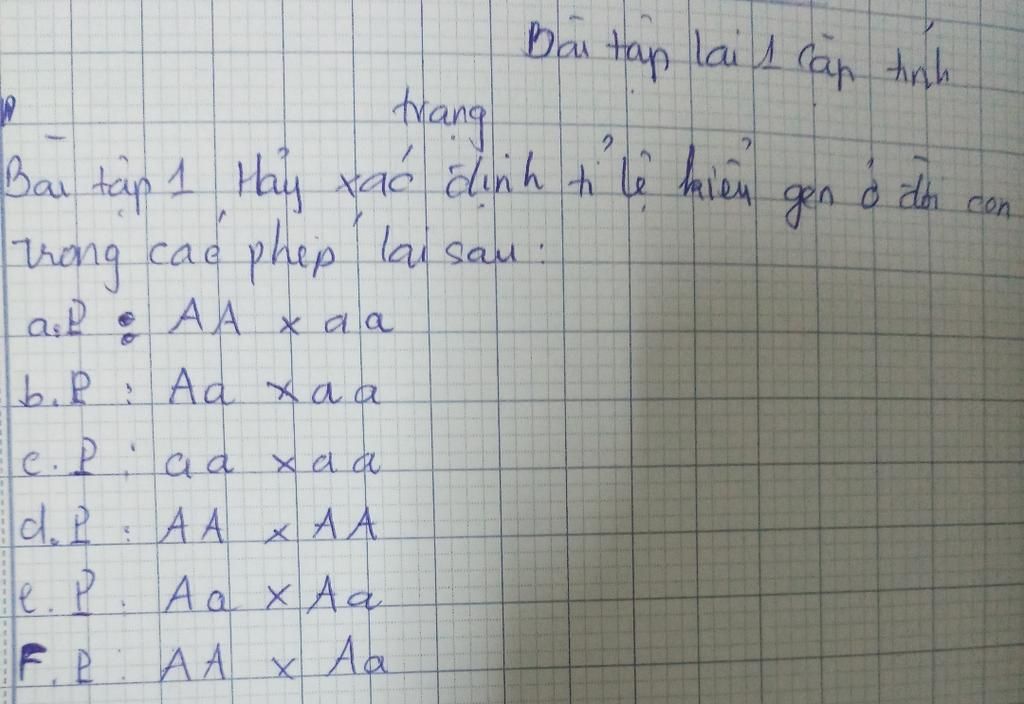 Bài tập lai 1 cặp tính
trạng
Bài tập 1 Hãy xác định tỉ lệ kiểu gen ở đời con
trong các phép lai sau:
a.P : AA x aa
b.P : Aa x aa
c.P : aa x aa
d.P : AA x AA
e.P : Aa x Aa
F.P : AA x Aa